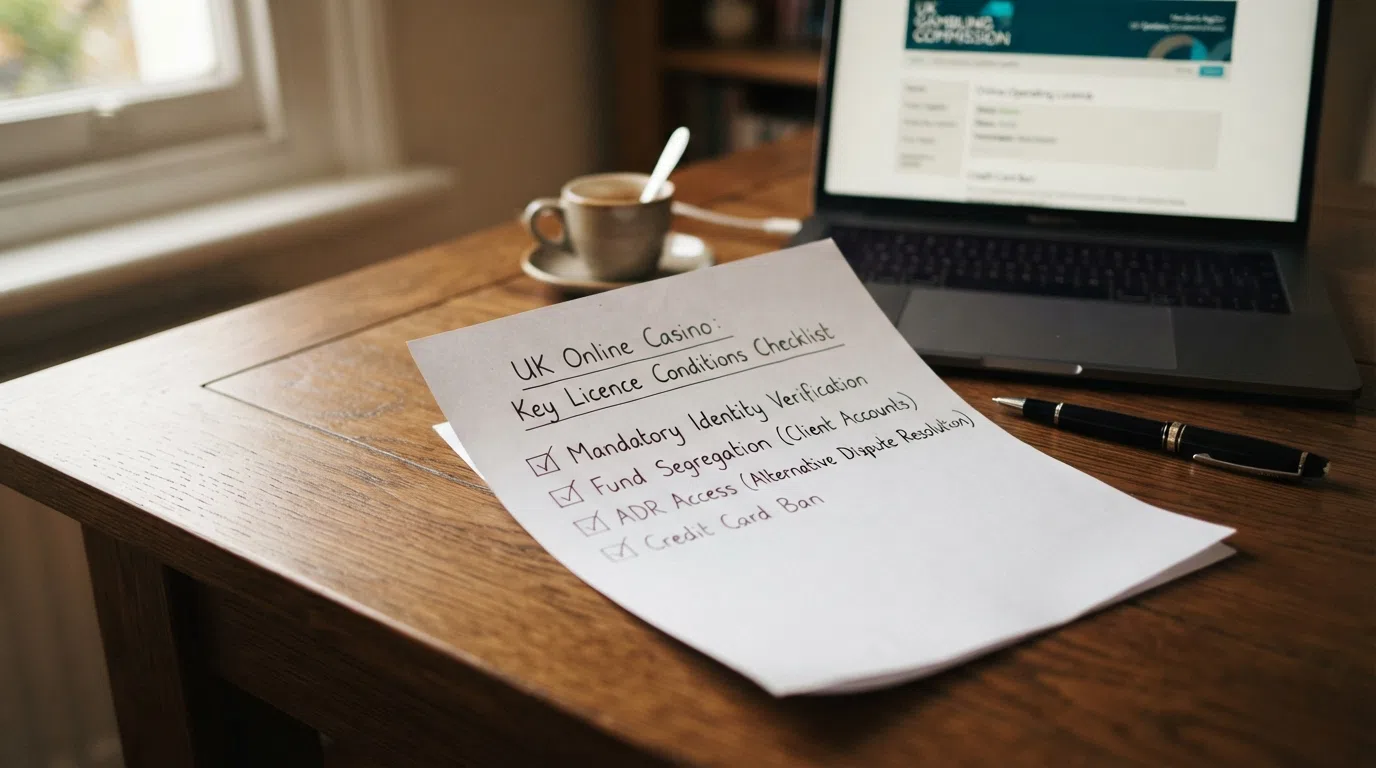 UK
GAMBLING
COMMISSION
Online Operating Licence
Credit Card Ban
UK Online Casino:
Key Licence Conditions Checklist
Mandatory Identity Verification
Fund Segregation (Client Accounts)
ADR Access (Alternative Dispute Resolution)
Credit Card Ban